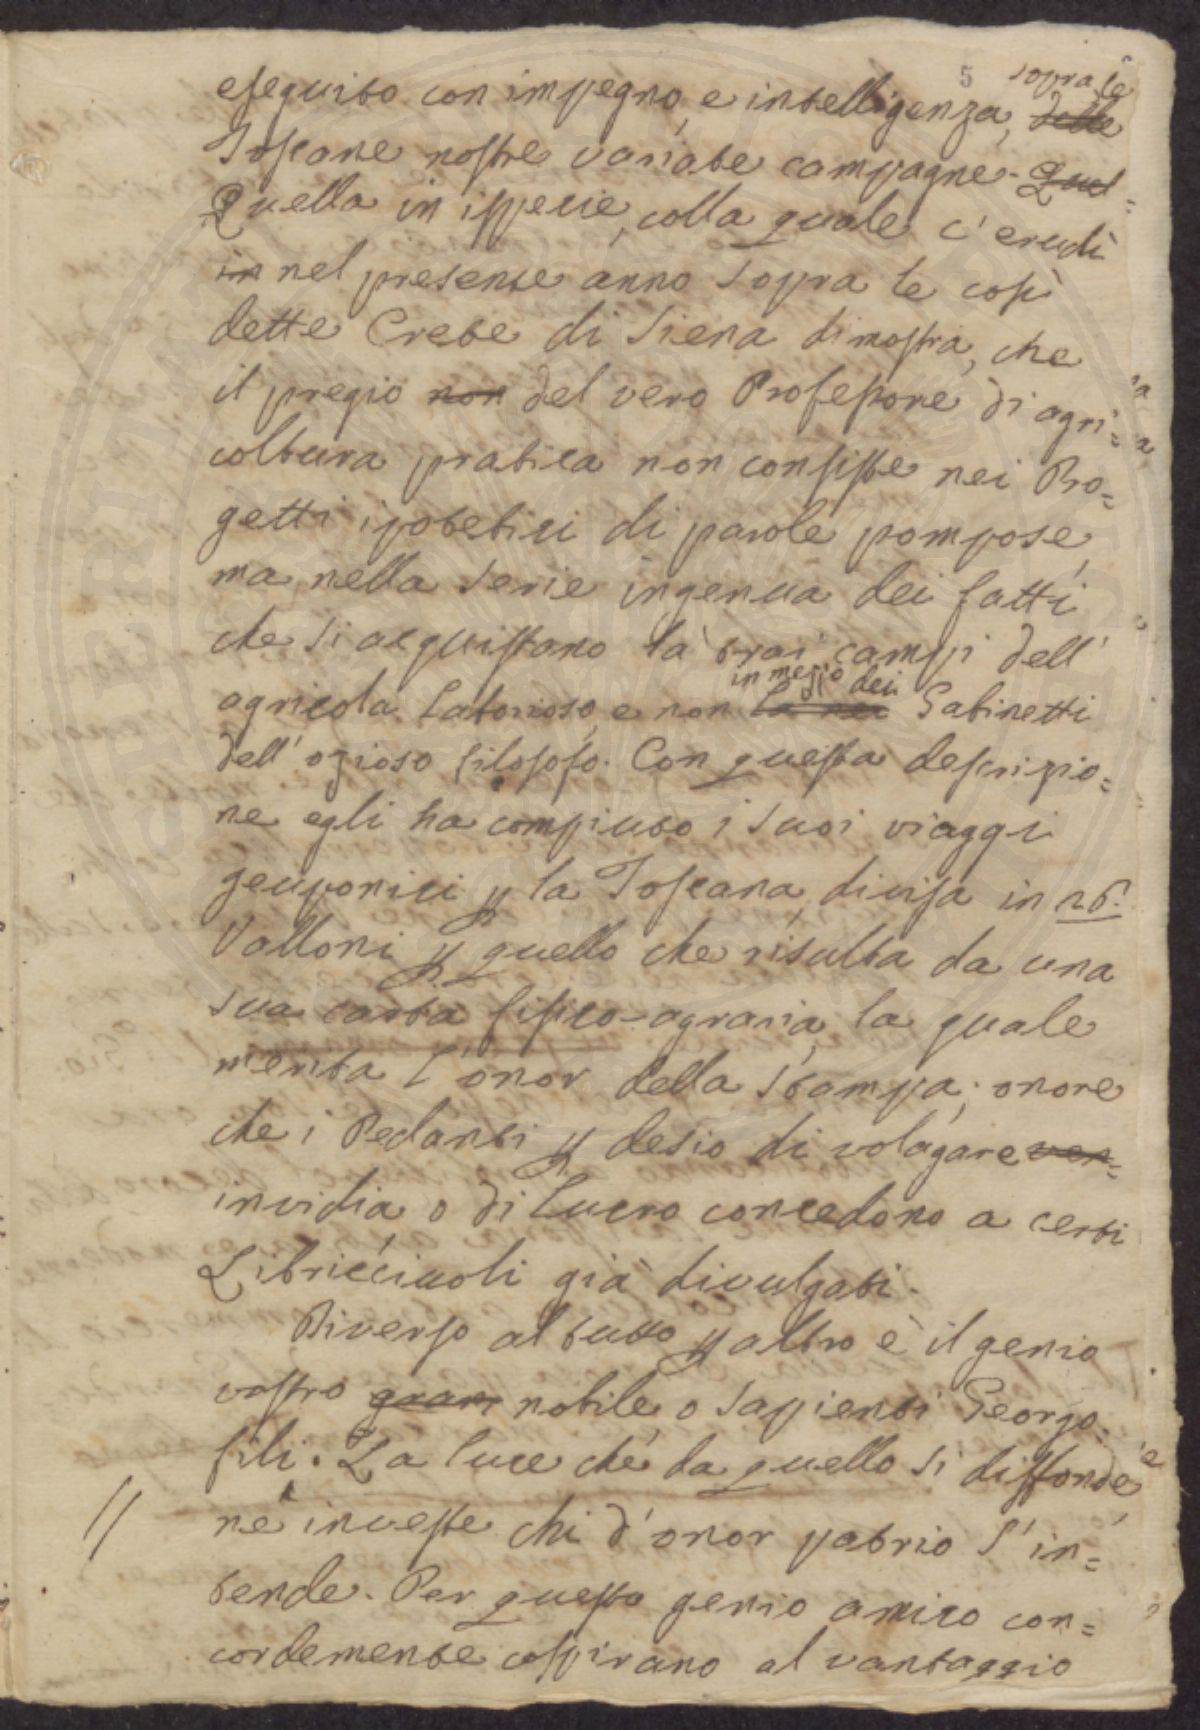 5
sopra le
eseguito con impegno, e intelligenza, delle
Toscane nostre variate campagne. Quel
Quella in ispecie, colla quale c'erudì
in nel presente anno sopra le così
dette Crete di Siena dimostra, che
il pregio non del vero Professore di agri=
coltura pratica non consiste nei Pro=
getti ipotetici di parole pompose,
ma nella serie ingenua dei fatti
che si acquistano là trai campi dell'
in mezzo dei
agricola laborioso, e non là nei Gabinetti
dell'ozioso filosofo. Con questa descrizio=
ne egli ha compiuto i suoi viaggi
geuponici p la Toscana, divisa in 26.
Valloni p quello che risulta da una
sua carta fisico-agraria, la quale
merita l'onor della stampa; onore
che i Pedanti p desio di volagare ven=
invidia o di lucro concedono a certi
Libricciuoli già divulgati.
Diverso al tutto p altro è il genio
vostro gram nobile, o sapienti Georgo=
fili. La luce che da quello si diffonde
ne investe chi d'onor patrio s'in=
tende. Per questo genio amico con=
cordemente cospirano al vantaggio